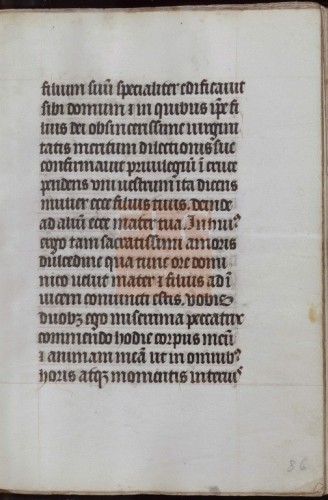 filium suū specialiter edificauit
sibi domum ⁊ in quibus ip̄e fi
lius dei ob sincerissime uirgini
tatis meritum dilectionis sue
confirmauit priuilegiū ī cruce
pendens vni uestrum ita dicens
mulier ecce filius tuus. deinde
ad aliū ecce mater tua. In hui⁹
ergo tam sacratissimi amoris
dulcedine qua tunc ore domi
nico uelut mater ⁊ filius ad ī
uicem coniuncti estis. vobis
duobꝫ ego miserrima peccatrix
commendo hodie corpus meū
⁊ animam meā ut in omnibꝫ
horis atqꝫ momentis interius
86